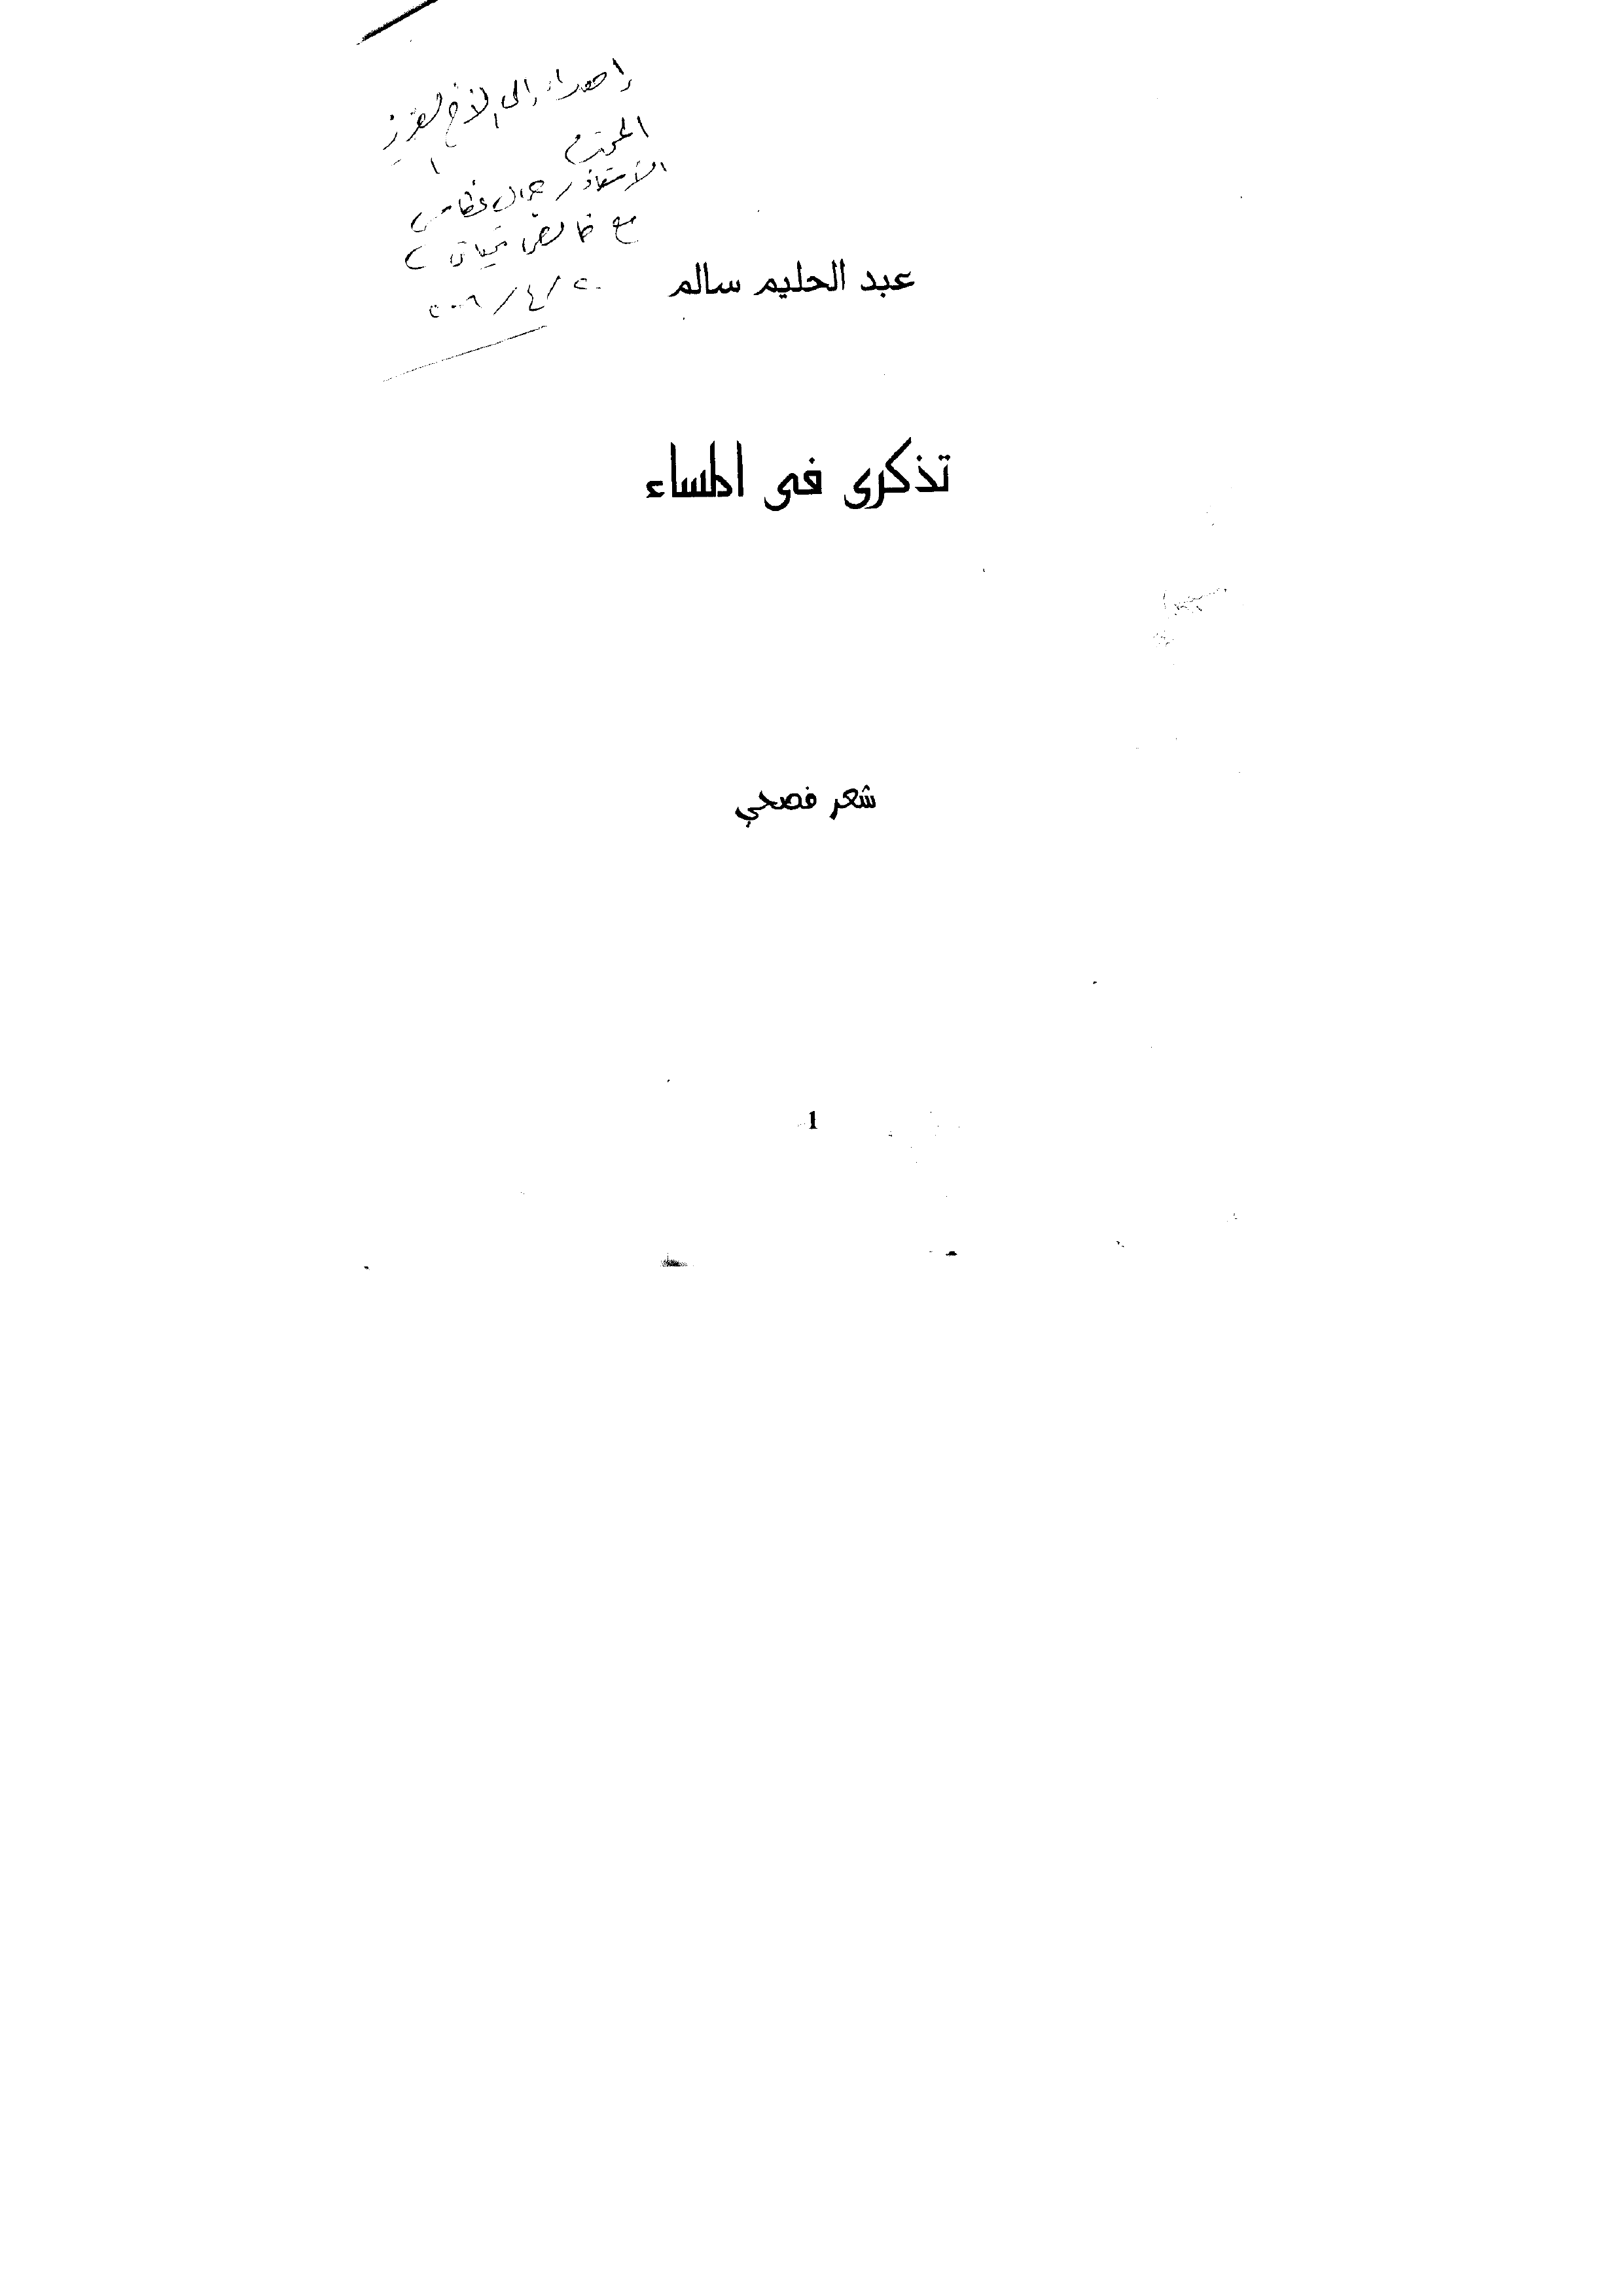 إهداء إلى الأخ العزيز
المحترم
الأستاذ / جمال
مع خالص تحياتى
٢٠ / ٤ / ٢٠٠٦
عبد الحليم سالم
تذكرى فى المساء
شعر فصحي
1